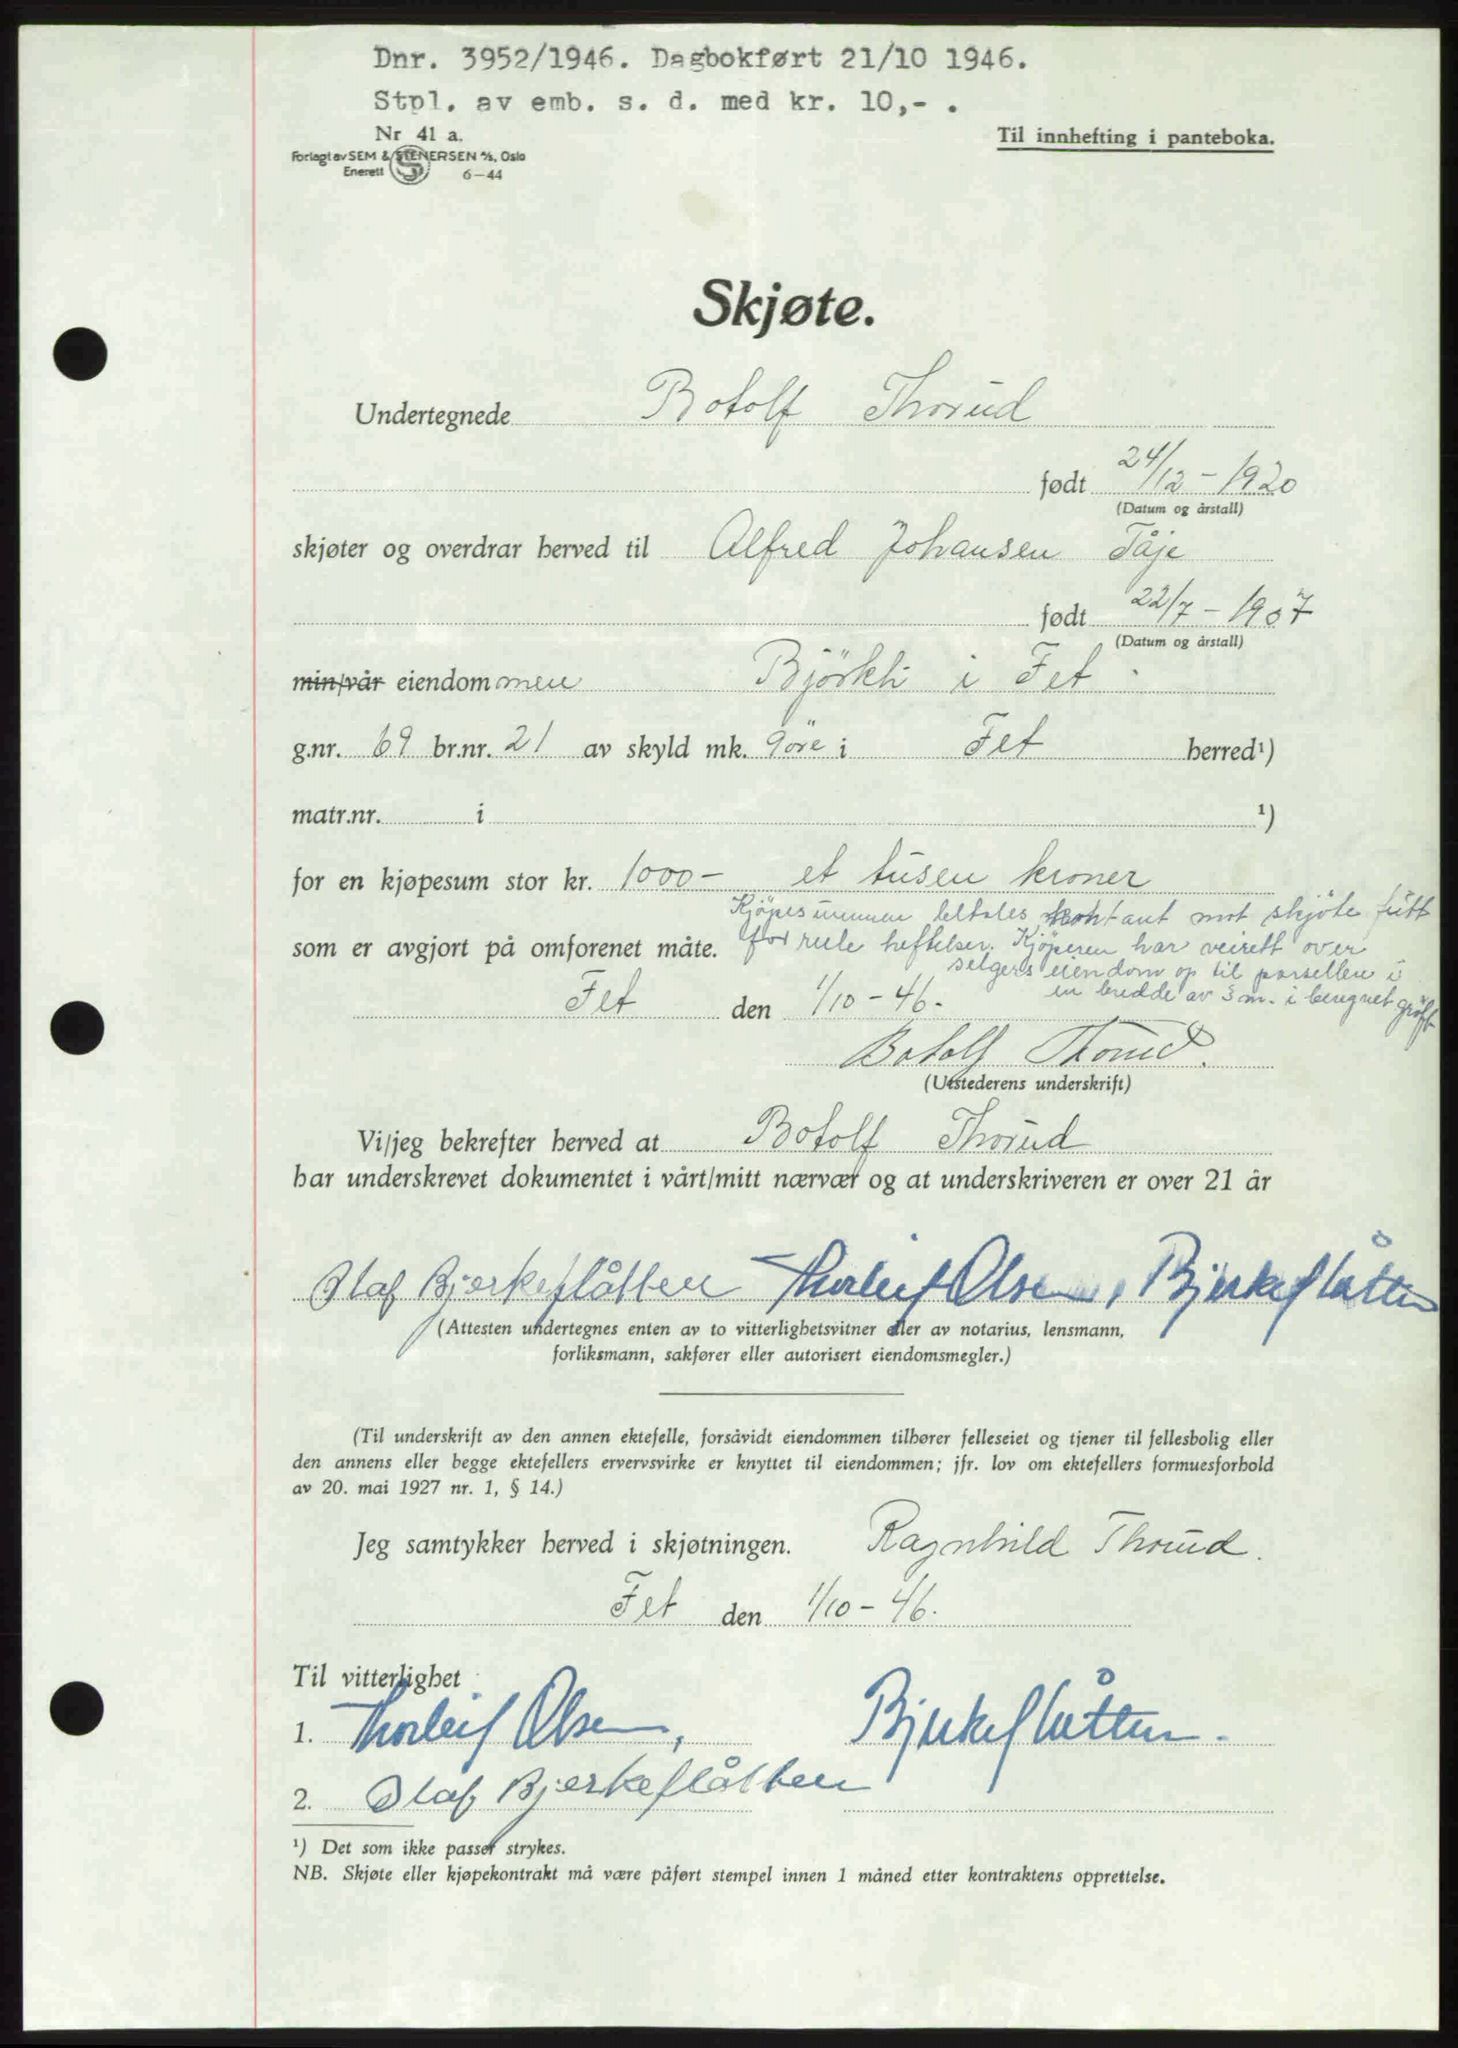 Dnr. 3952/1946. Dagbokført 21/10 1946.
Stpl. av emb. s. d. med kr. 10,- .
Nr 41 a.
Til innhefting i panteboka.
Forlagt av SEM & STENERSEN A/S, Oslo
Enerett 6-44
Skjøte.
Undertegnede Botolf Thorud
født 24/12 - 1920
(Datum og årstall)
skjøter og overdrar herved til Alfred Johansen Tåje
født 22/7 - 1907
(Datum og årstall)
min/vår eiendommen Björkli i Fet.
g.nr. 69 br.nr. 21 av skyld mk. 9 öre i Fet herred¹)
matr.nr. i ¹)
for en kjøpesum stor kr. 1000- et tusen kroner
Kjöpesummen betales kontant mot skjöte fritt
som er avgjort på omforenet måte. for heftelser. Kjöperen har veirett over
selgers eiendom op til parsellen i
en bredde av 3 m. i beregnet gröft
Fet den 1/10 - 46.
Botolf Thorud.
(Utstederens underskrift)
Vi/jeg bekrefter herved at Botolf Thorud
har underskrevet dokumentet i vårt/mitt nærvær og at underskriveren er over 21 år
Olaf Bjerkeflåtten Thorleif Olsen, Bjerkeflåtten
(Attesten undertegnes enten av to vitterlighetsvitner eller av notarius, lensmann,
forliksmann, sakfører eller autorisert eiendomsmegler.)
(Til underskrift av den annen ektefelle, forsåvidt eiendommen tilhører felleseiet og tjener til fellesbolig eller
den annens eller begge ektefellers ervervsvirke er knyttet til eiendommen; jfr. lov om ektefellers formuesforhold
av 20. mai 1927 nr. 1, § 14.)
Jeg samtykker herved i skjøtningen. Ragnhild Thorud.
Fet den 1/10 - 46.
Til vitterlighet
1. Thorleif Olsen, Bjerkeflåtten.
2. Olaf Bjerkeflåtten
¹) Det som ikke passer strykes.
NB. Skjøte eller kjøpekontrakt må være påført stempel innen 1 måned etter kontraktens opprettelse.